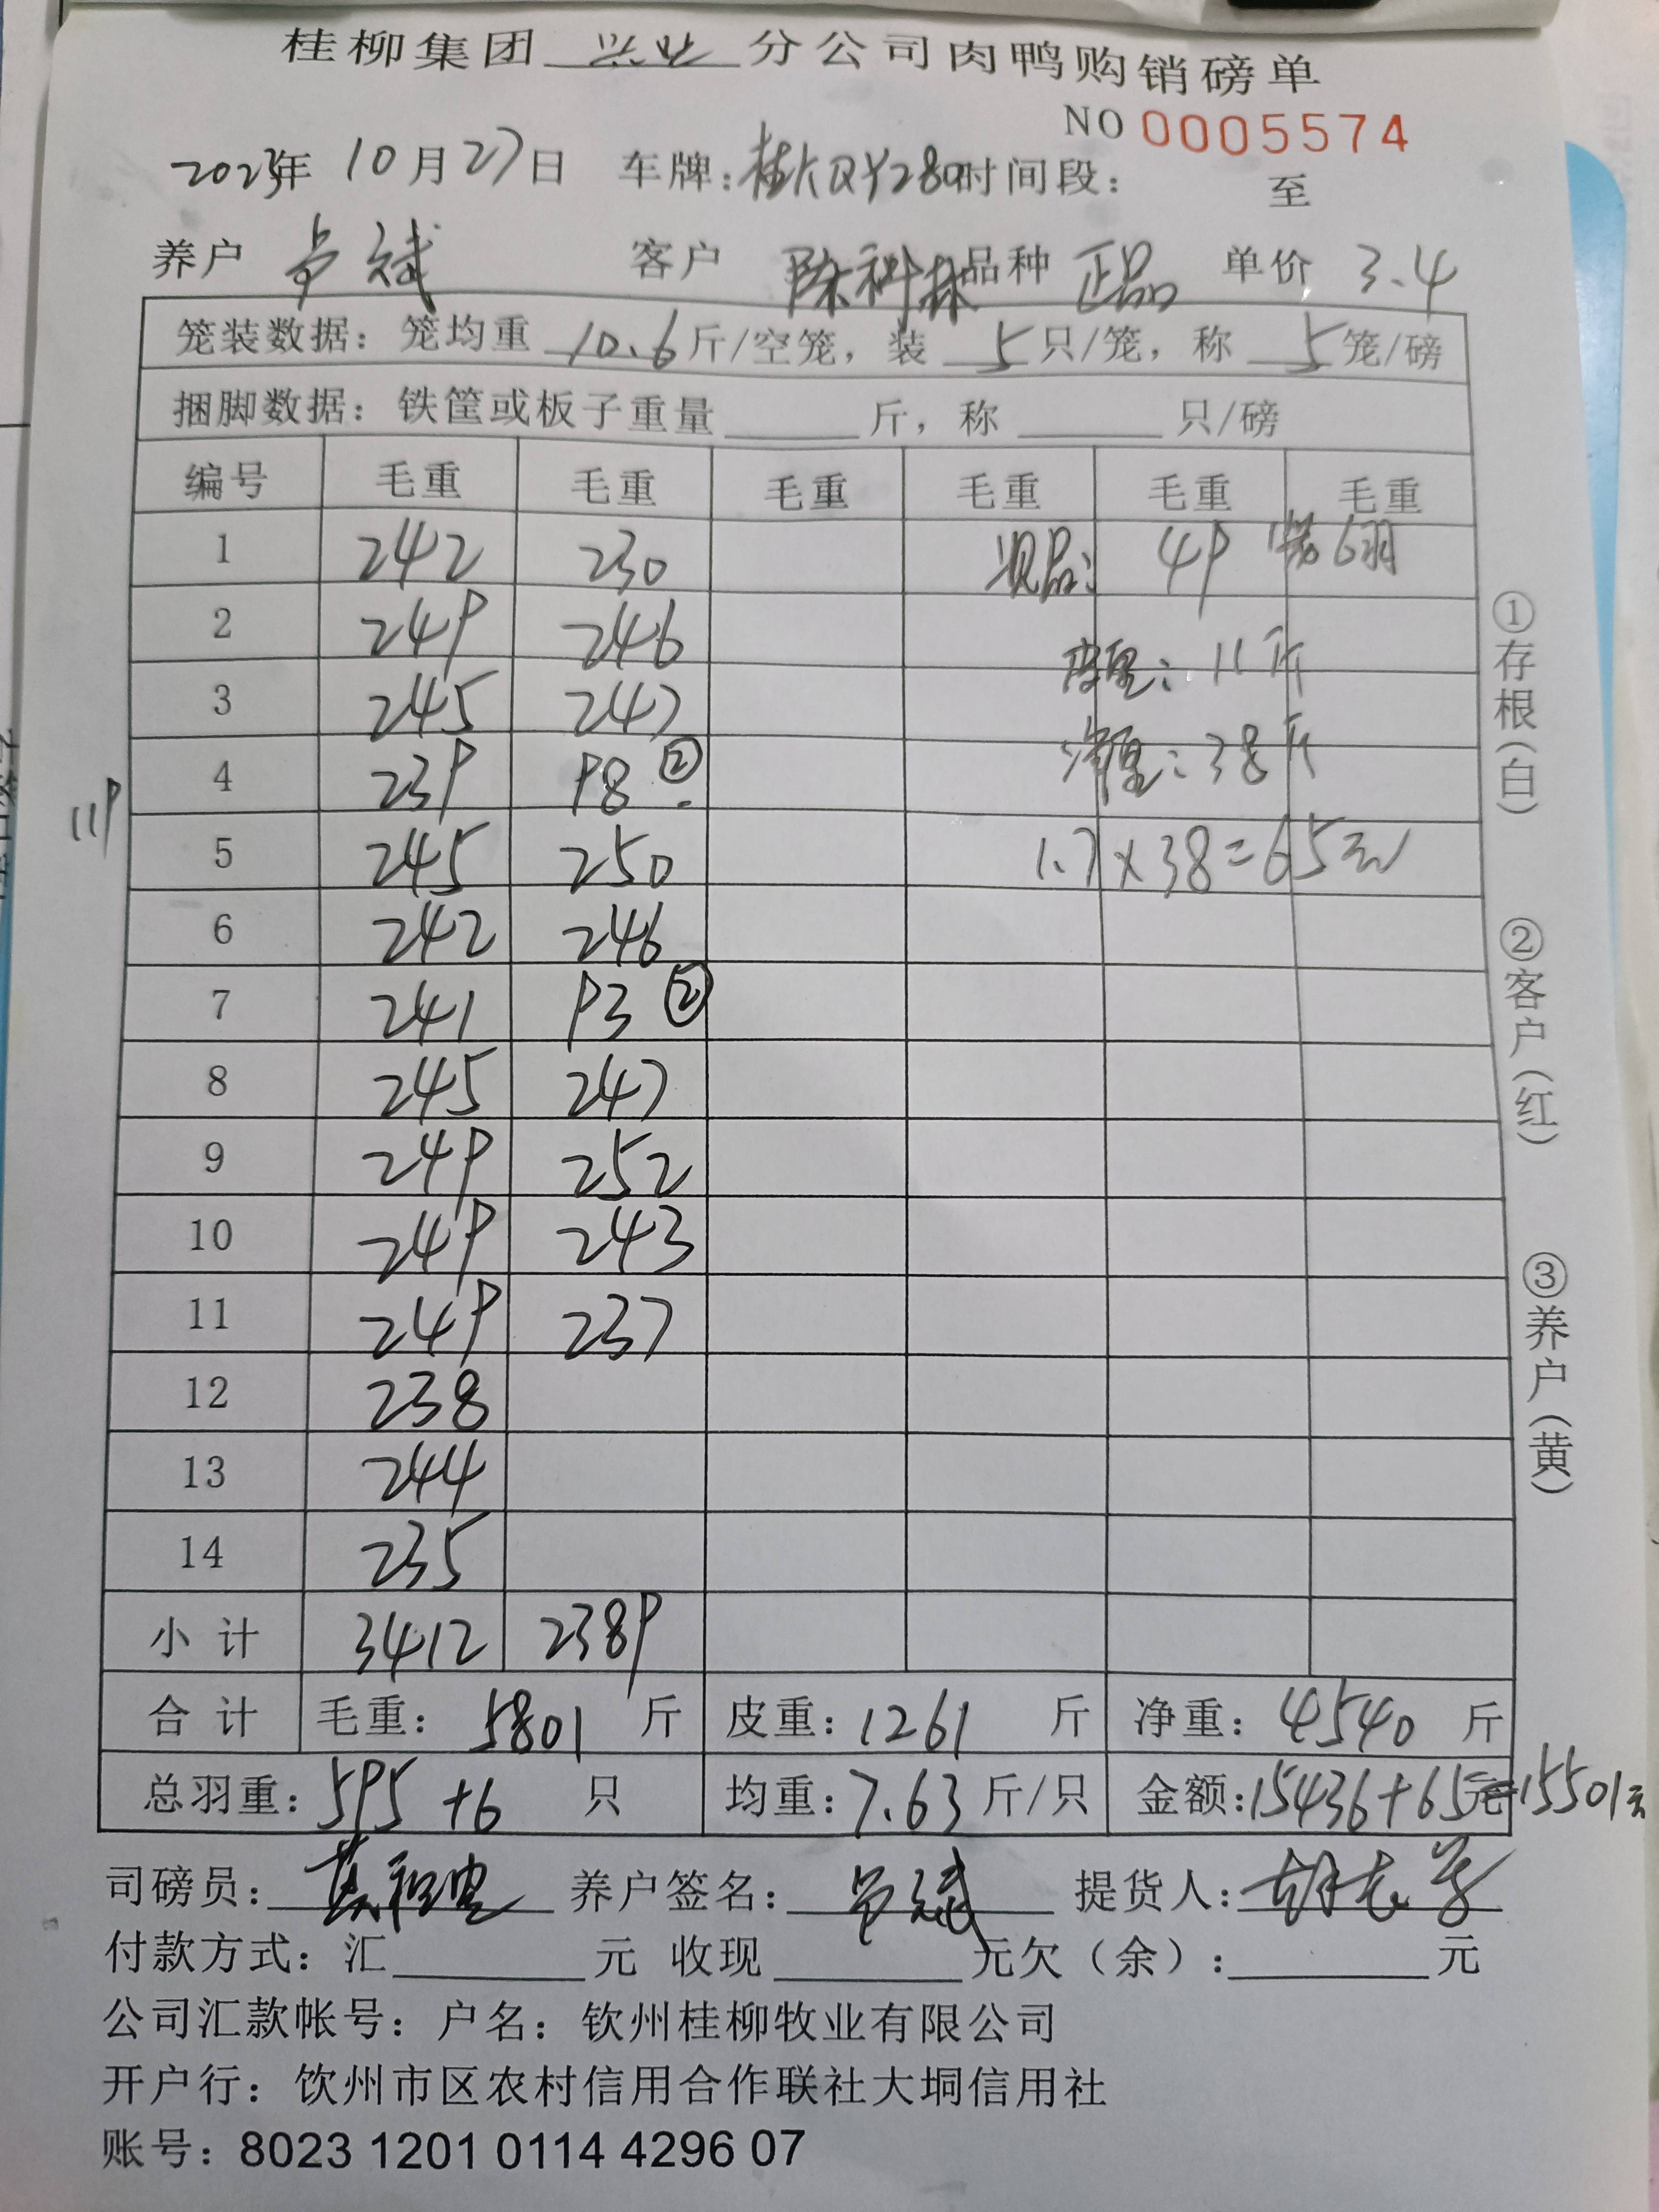 桂柳集团 兴业 分公司肉鸭购销磅单
NO 0005574
2023年 10月27日 车牌:桂KQY280 时间段: 至
养户 卢斌 客户 陈科林 品种 正品 单价 3.4
笼装数据: 笼均重 10.6 斤/空笼, 装 5 只/笼, 称 5 笼/磅
捆脚数据: 铁筐或板子重量 斤, 称 只/磅
编号 毛重 毛重 毛重 毛重 毛重 毛重
1 242 230 次品: 49 1笼6羽
2 249 246 皮重: 11斤
3 245 247
4 239 98 ② 净重: 38斤
119
5 245 250 1.7×38=65元
6 242 246
7 241 93 ②
8 245 247
9 249 252
10 249 243
11 249 237
12 238
13 244
14 235
小计 3412 2389
合计 毛重: 5801 斤 皮重: 1261 斤 净重: 4540 斤
总羽重: 595+6 只 均重: 7.63 斤/只 金额: 15436+65元=15501元
①存根(白) ②客户(红) ③养户(黄)
司磅员: 养户签名: 卢斌 提货人: 胡
付款方式: 汇 元 收现 元欠(余): 元
公司汇款帐号: 户名: 钦州桂柳牧业有限公司
开户行: 饮州市区农村信用合作联社大垌信用社
账号: 8023 1201 0114 4296 07